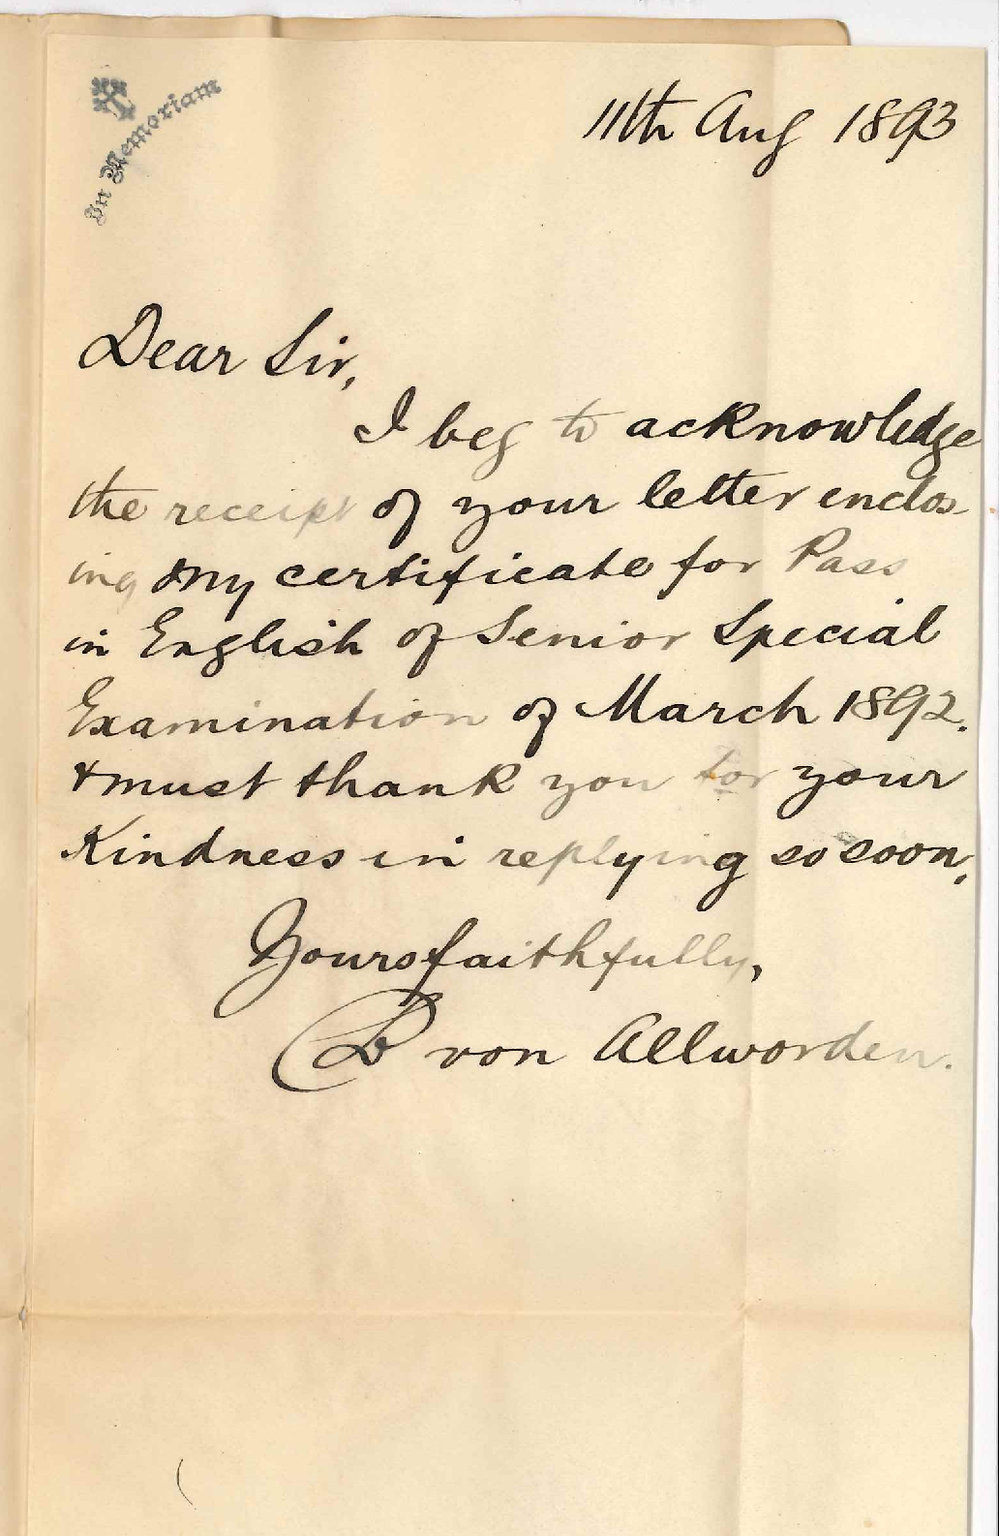 In Memoriam
11th Aug 1893
Dear Sir,
I beg to acknowledge
the receipt of your letter enclos-
ing my certificate for Pass
in English of Senior Special
Examination of March 1892.
& must thank you for your
Kindness in replying so soon,
Yours faithfully,
B von Allworden.